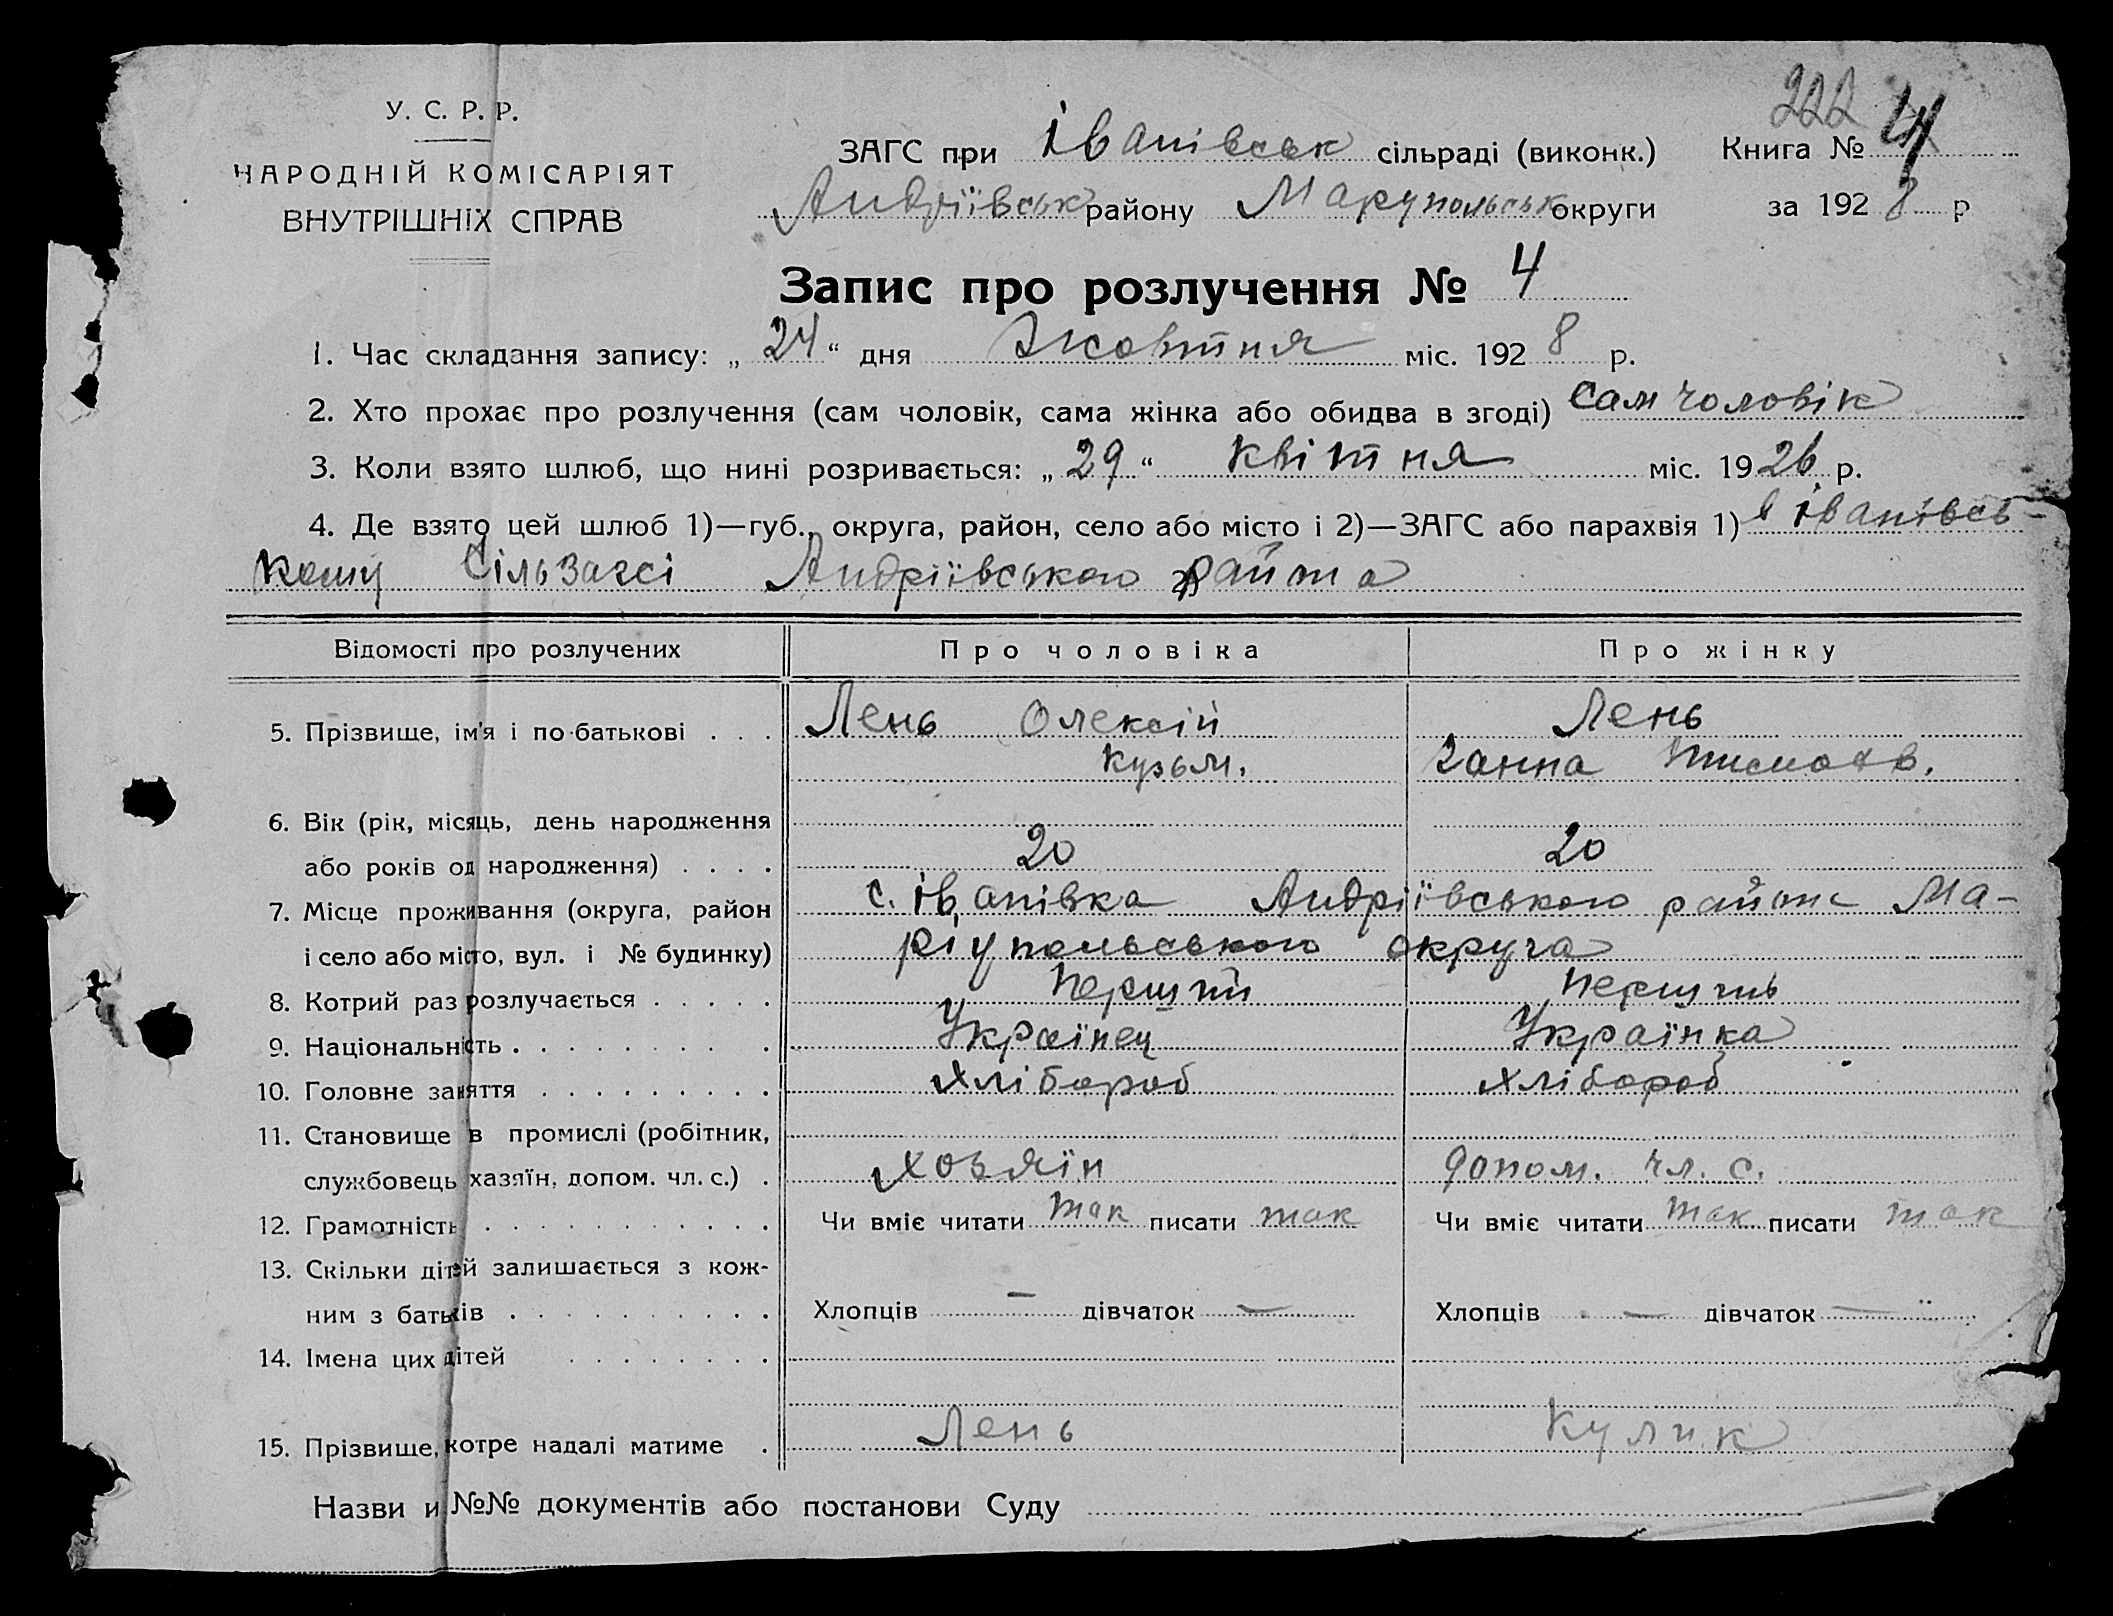 У. С. Р. Р.
НАРОДНІЙ КОМІСАРІЯТ
ВНУТРІШНІХ СПРАВ
222
ЗАГС при Іванівськ сільраді (виконк.) Книга №
Андріївськ району Марупольськ округи за 1928 р
Запис про розлучення № 4
1. Час складання запису: „24“ дня Жовтня міс. 1928 р.
2. Хто прохає про розлучення (сам чоловік, сама жінка або обидва в згоді) сам чоловік
3. Коли взято шлюб, що нині розривається: „29“ квітня міс. 1926 р.
4. Де взято цей шлюб 1)—губ., округа, район, село або місто і 2)—ЗАГС або парахвія 1) в Іванівсь-
кому Сільзагсі Андріївського
Відомості про розлучених Про чоловіка Про жінку
5. Прізвище, ім'я і по-батькові . . . Лень Олексій Лень
Кузьм. Ганна
6. Вік (рік, місяць, день народження
або років од народження) . . . . 20 20
7. Місце проживання (округа, район с. Іванівка Андріївського Ма-
і село або місто, вул. і № будинку) ріупольського округа
8. Котрий раз розлучається . . . . .
9. Національність . . . . . . . . . Українец Українка
10. Головне заняття . . . . . . . . . Хлібороб Хлібороб
11. Становище в промислі (робітник,
службовець хазяїн, допом. чл. с.) . Хозяїн допом. чл. с.
12. Грамотність . . . . . . . . . . . Чи вміє читати так писати так Чи вміє читати так писати так
13. Скільки дітей залишається з кож-
ним з батьків . . . . . . . . . . Хлопців — дівчаток — Хлопців — дівчаток —
14. Імена цих дітей . . . . . . . .
15. Прізвище, котре надалі матиме . Лень Кулик
Назви и №№ документів або постанови Суду